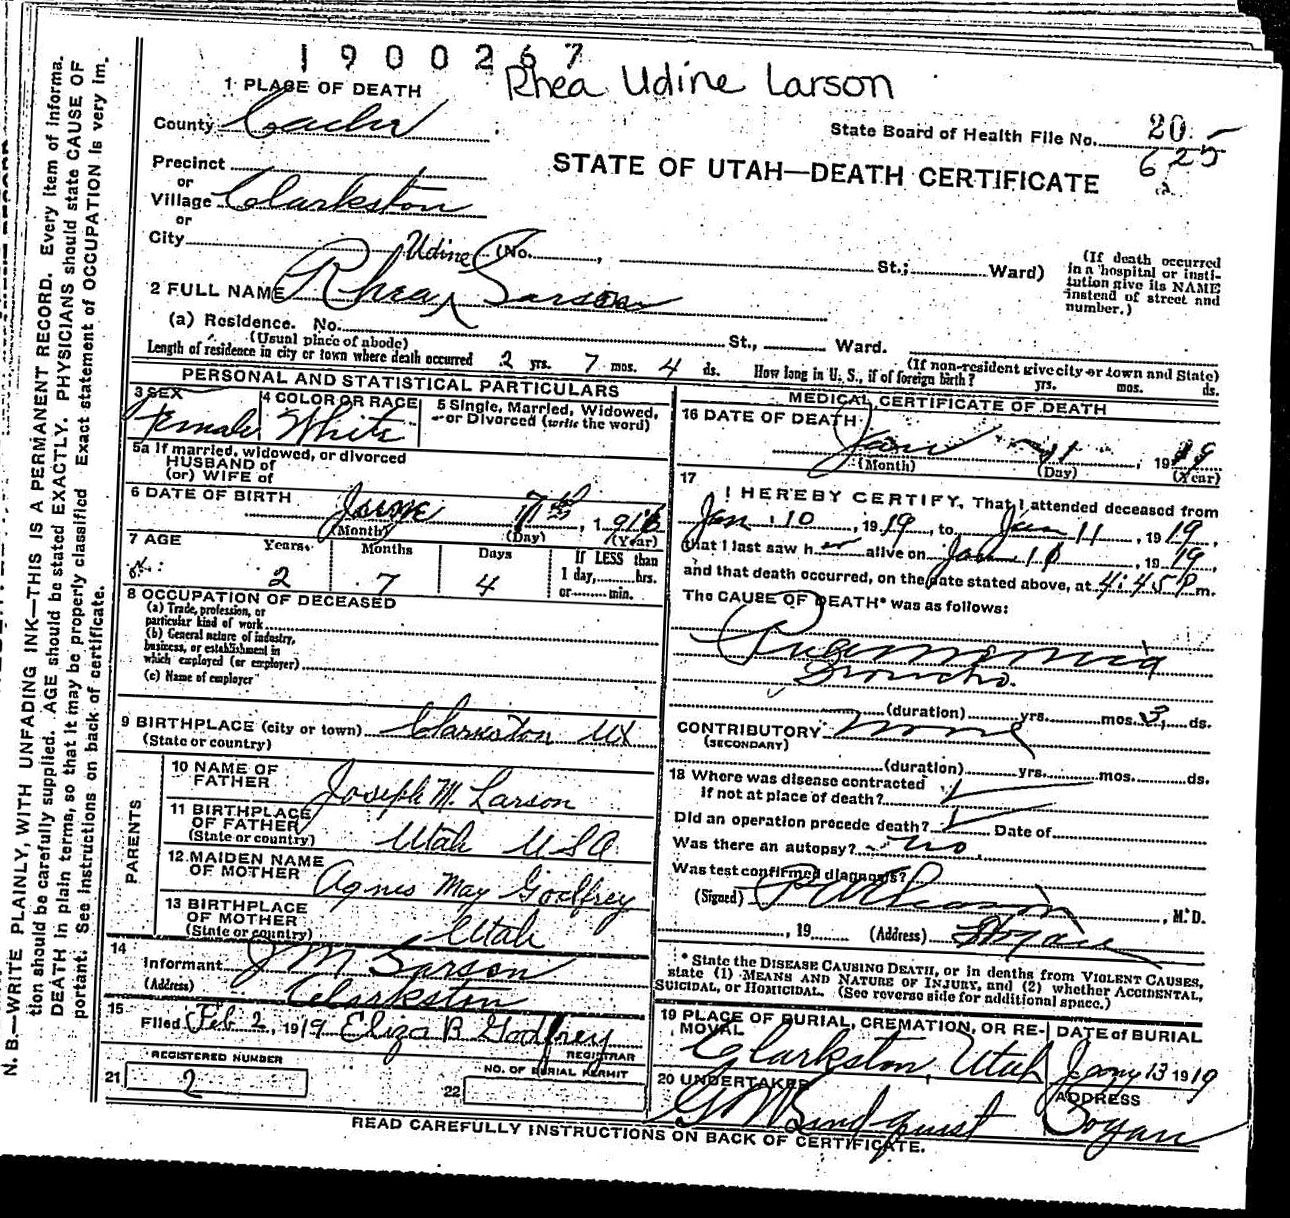 1900267
Rhea Udine Larson
1 PLACE OF DEATH
County Cache
State Board of Health File No. 20
625
Precinct
or
STATE OF UTAH—DEATH CERTIFICATE
Village Clarkston
or
City (No. , St.; Ward)
(If death occurred
in a hospital or insti-
tution give its NAME
instead of street and
number.)
Udine
2 FULL NAME Rhea Larson
(a) Residence. No. St., Ward.
(Usual place of abode) (If non-resident give city or town and State)
Length of residence in city or town where death occurred 2 yrs. 7 mos. 4 ds. How long in U. S., if of foreign birth? yrs. mos. ds.
PERSONAL AND STATISTICAL PARTICULARS
3 SEX 4 COLOR OR RACE 5 Single, Married, Widowed,
or Divorced (write the word)
Female White
5a If married, widowed, or divorced
HUSBAND of
(or) WIFE of
6 DATE OF BIRTH June 7th, 1916
(Month) (Day) (Year)
7 AGE Years Months Days If LESS than
1 day, hrs.
or min.
2 7 4
8 OCCUPATION OF DECEASED
(a) Trade, profession, or
particular kind of work
(b) General nature of industry,
business, or establishment in
which employed (or employer)
(c) Name of employer
9 BIRTHPLACE (city or town) Clarkston Ut
(State or country)
PARENTS
10 NAME OF
FATHER Joseph M. Larson
11 BIRTHPLACE
OF FATHER
(State or country) Utah USA
12 MAIDEN NAME
OF MOTHER Agnes May Godfrey
13 BIRTHPLACE
OF MOTHER
(State or country) Utah
14
Informant J M Larson
(Address) Clarkston
15
Filed Feb 2, 1919 Eliza B Godfrey
REGISTRAR
REGISTERED NUMBER NO. OF BURIAL PERMIT
21 2 22
MEDICAL CERTIFICATE OF DEATH
16 DATE OF DEATH
Jan 11, 1919
(Month) (Day) (Year)
17
I HEREBY CERTIFY, That I attended deceased from
Jan 10, 1919, to Jan 11, 1919,
that I last saw her alive on Jan 11, 1919,
and that death occurred, on the date stated above, at 4:45 P m.
The CAUSE OF DEATH* was as follows:
Pneumonia
Broncho.
(duration) yrs. mos. 3 ds.
CONTRIBUTORY none
(SECONDARY)
(duration) yrs. mos. ds.
18 Where was disease contracted
if not at place of death?
Did an operation precede death? Date of
Was there an autopsy? no.
Was test confirmed diagnosis?
(Signed) , M.D.
, 19 (Address) Logan
* State the DISEASE CAUSING DEATH, or in deaths from VIOLENT CAUSES,
state (1) MEANS AND NATURE OF INJURY, and (2) whether ACCIDENTAL,
SUICIDAL, or HOMICIDAL. (See reverse side for additional space.)
19 PLACE OF BURIAL, CREMATION, OR RE-
MOVAL
DATE of BURIAL
Clarkston, Utah Jany 13 1919
20 UNDERTAKER ADDRESS
G W Lindquist Logan
READ CAREFULLY INSTRUCTIONS ON BACK OF CERTIFICATE.
N. B.—WRITE PLAINLY, WITH UNFADING INK—THIS IS A PERMANENT RECORD. Every item of informa-
tion should be carefully supplied. AGE should be stated EXACTLY. PHYSICIANS should state CAUSE OF
DEATH in plain terms, so that it may be properly classified. Exact statement of OCCUPATION is very im-
portant. See instructions on back of certificate.